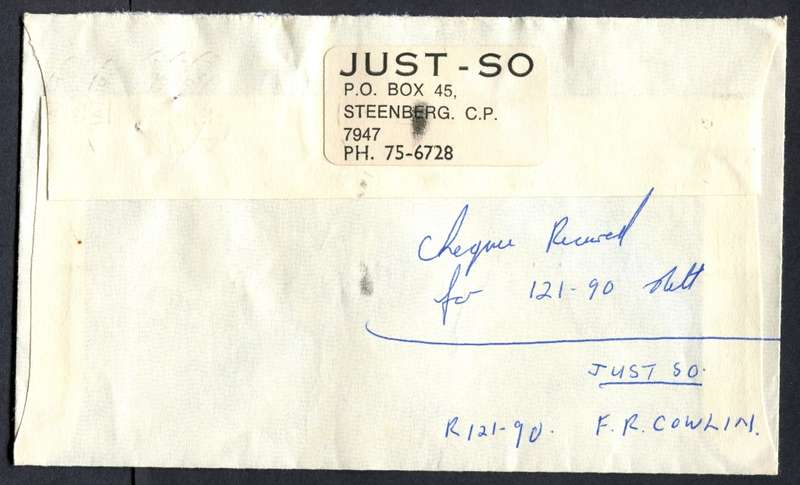 JUST - SO
P.O. BOX 45,
STEENBERG. C.P.
7947
PH. 75-6728
Cheque Received
for 121-90
JUST SO.
R121-90. F.R. COWLIN.